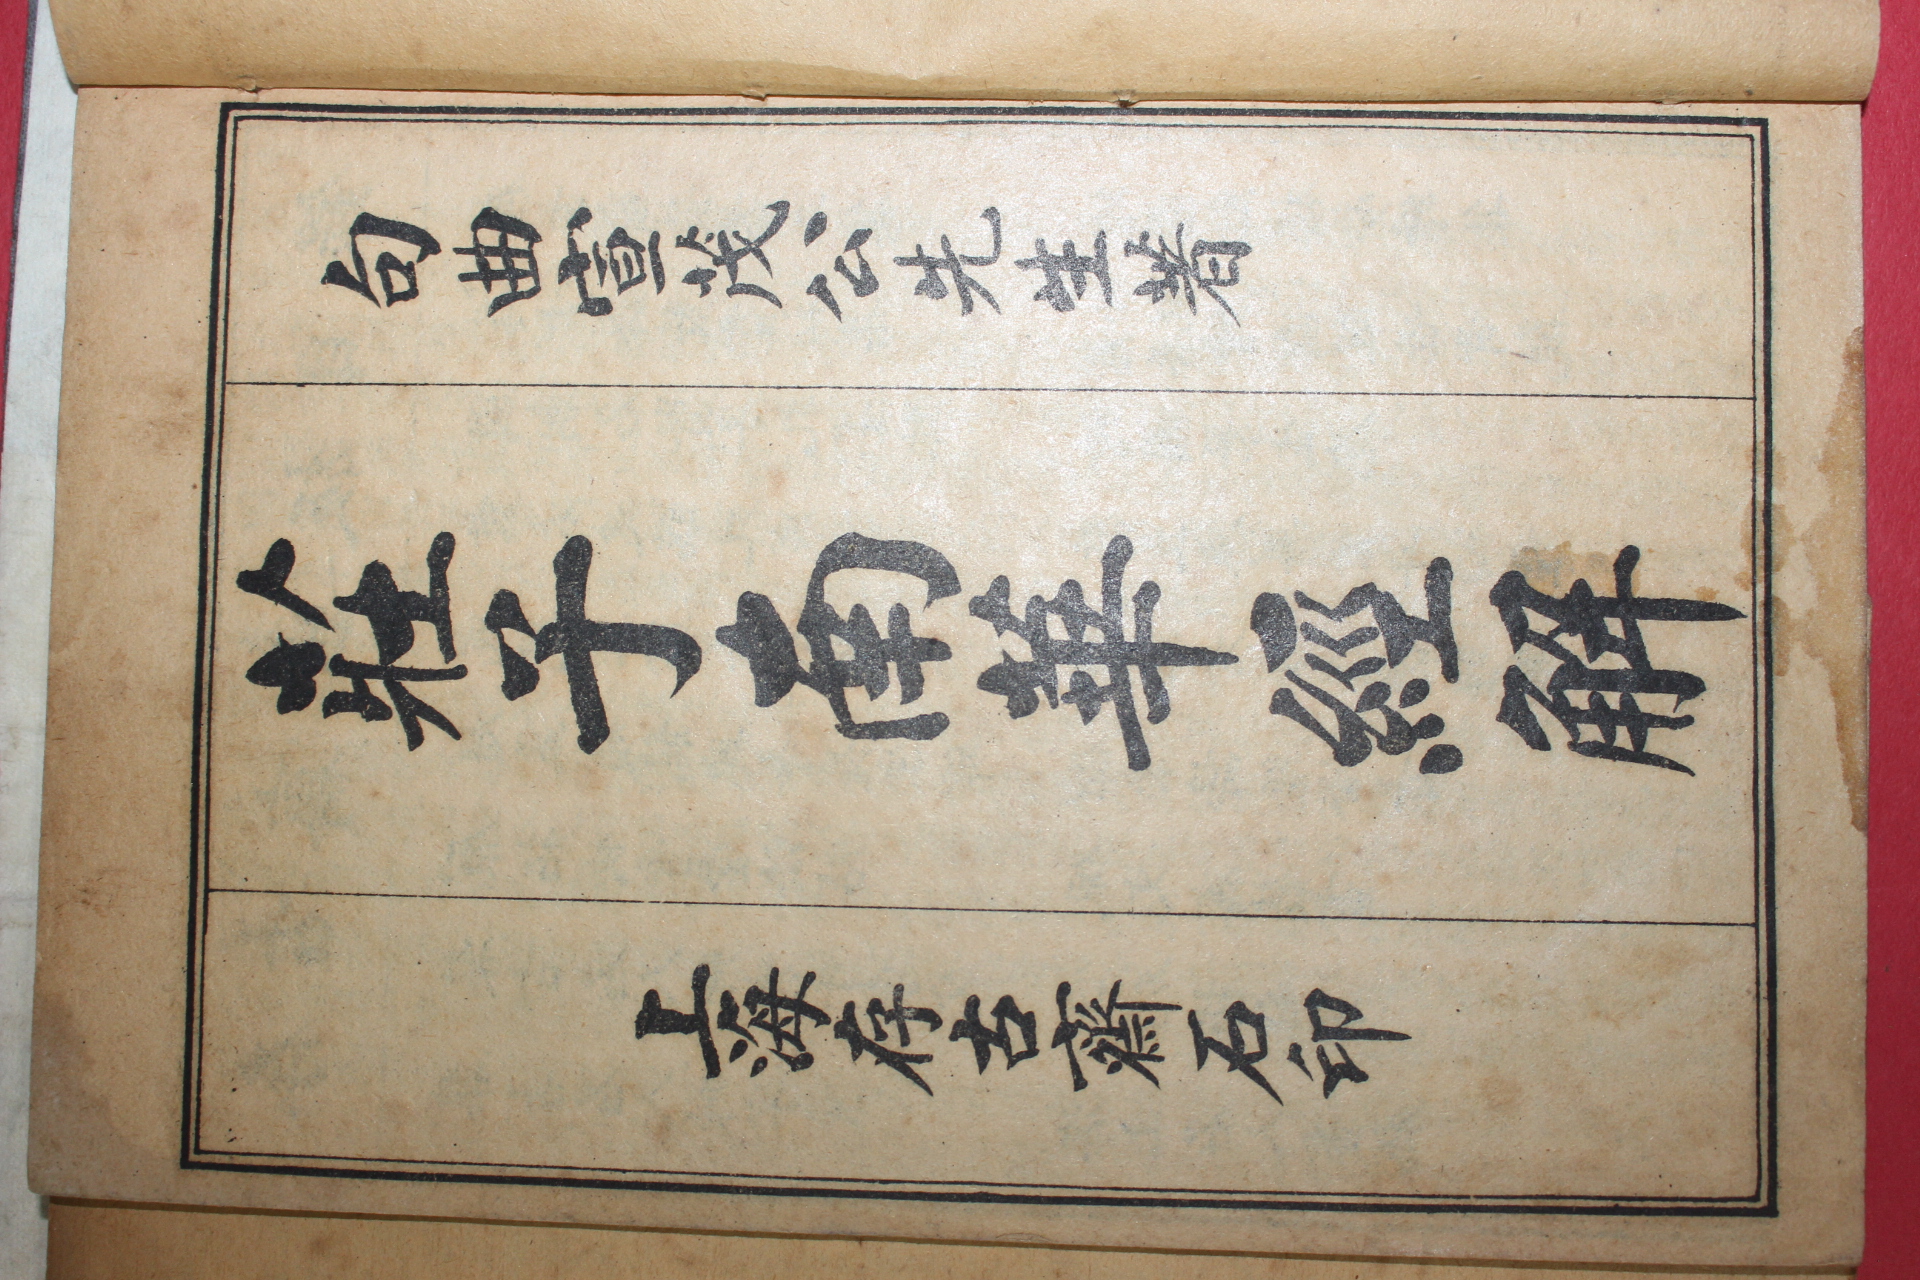 句曲宣茂公先生著
莊子南華經解
上海存古齋石印